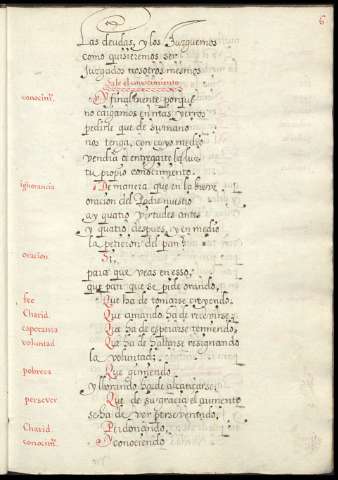 6
Las deudas, y los Juzguemos
como quisieremos ser
Juzgados nosotros mesmos
Sale el conocimiento
conocimto. Y finalmente porque
no caigamos en mas yerros
pedirle que de su mano
nos tenga, con cuyo medio
vendra a entregarte la luz
tu propio conocimiento.
ignorancia De manera que en la breve
oracion del Padre nuestro
ay quatro virtudes antes
y quatro despues, y en medio
la peticion del pan?
oracion Si,
para que veas en esso,
que pan que se pide orando,
fee Que ha de tomarse creyendo.
Charid. Que amando ha de recevirse.
esperanza Que ha de esperarse temiendo,
voluntad Que ha de hallarse resignando
la voluntad;
pobreza Que gimiendo
y llorando ha de alcançarse;
persever Que de su gracia el aumento
se ha de ver perseverando,
Charid. Perdonando,
conocimto. Y conociendo